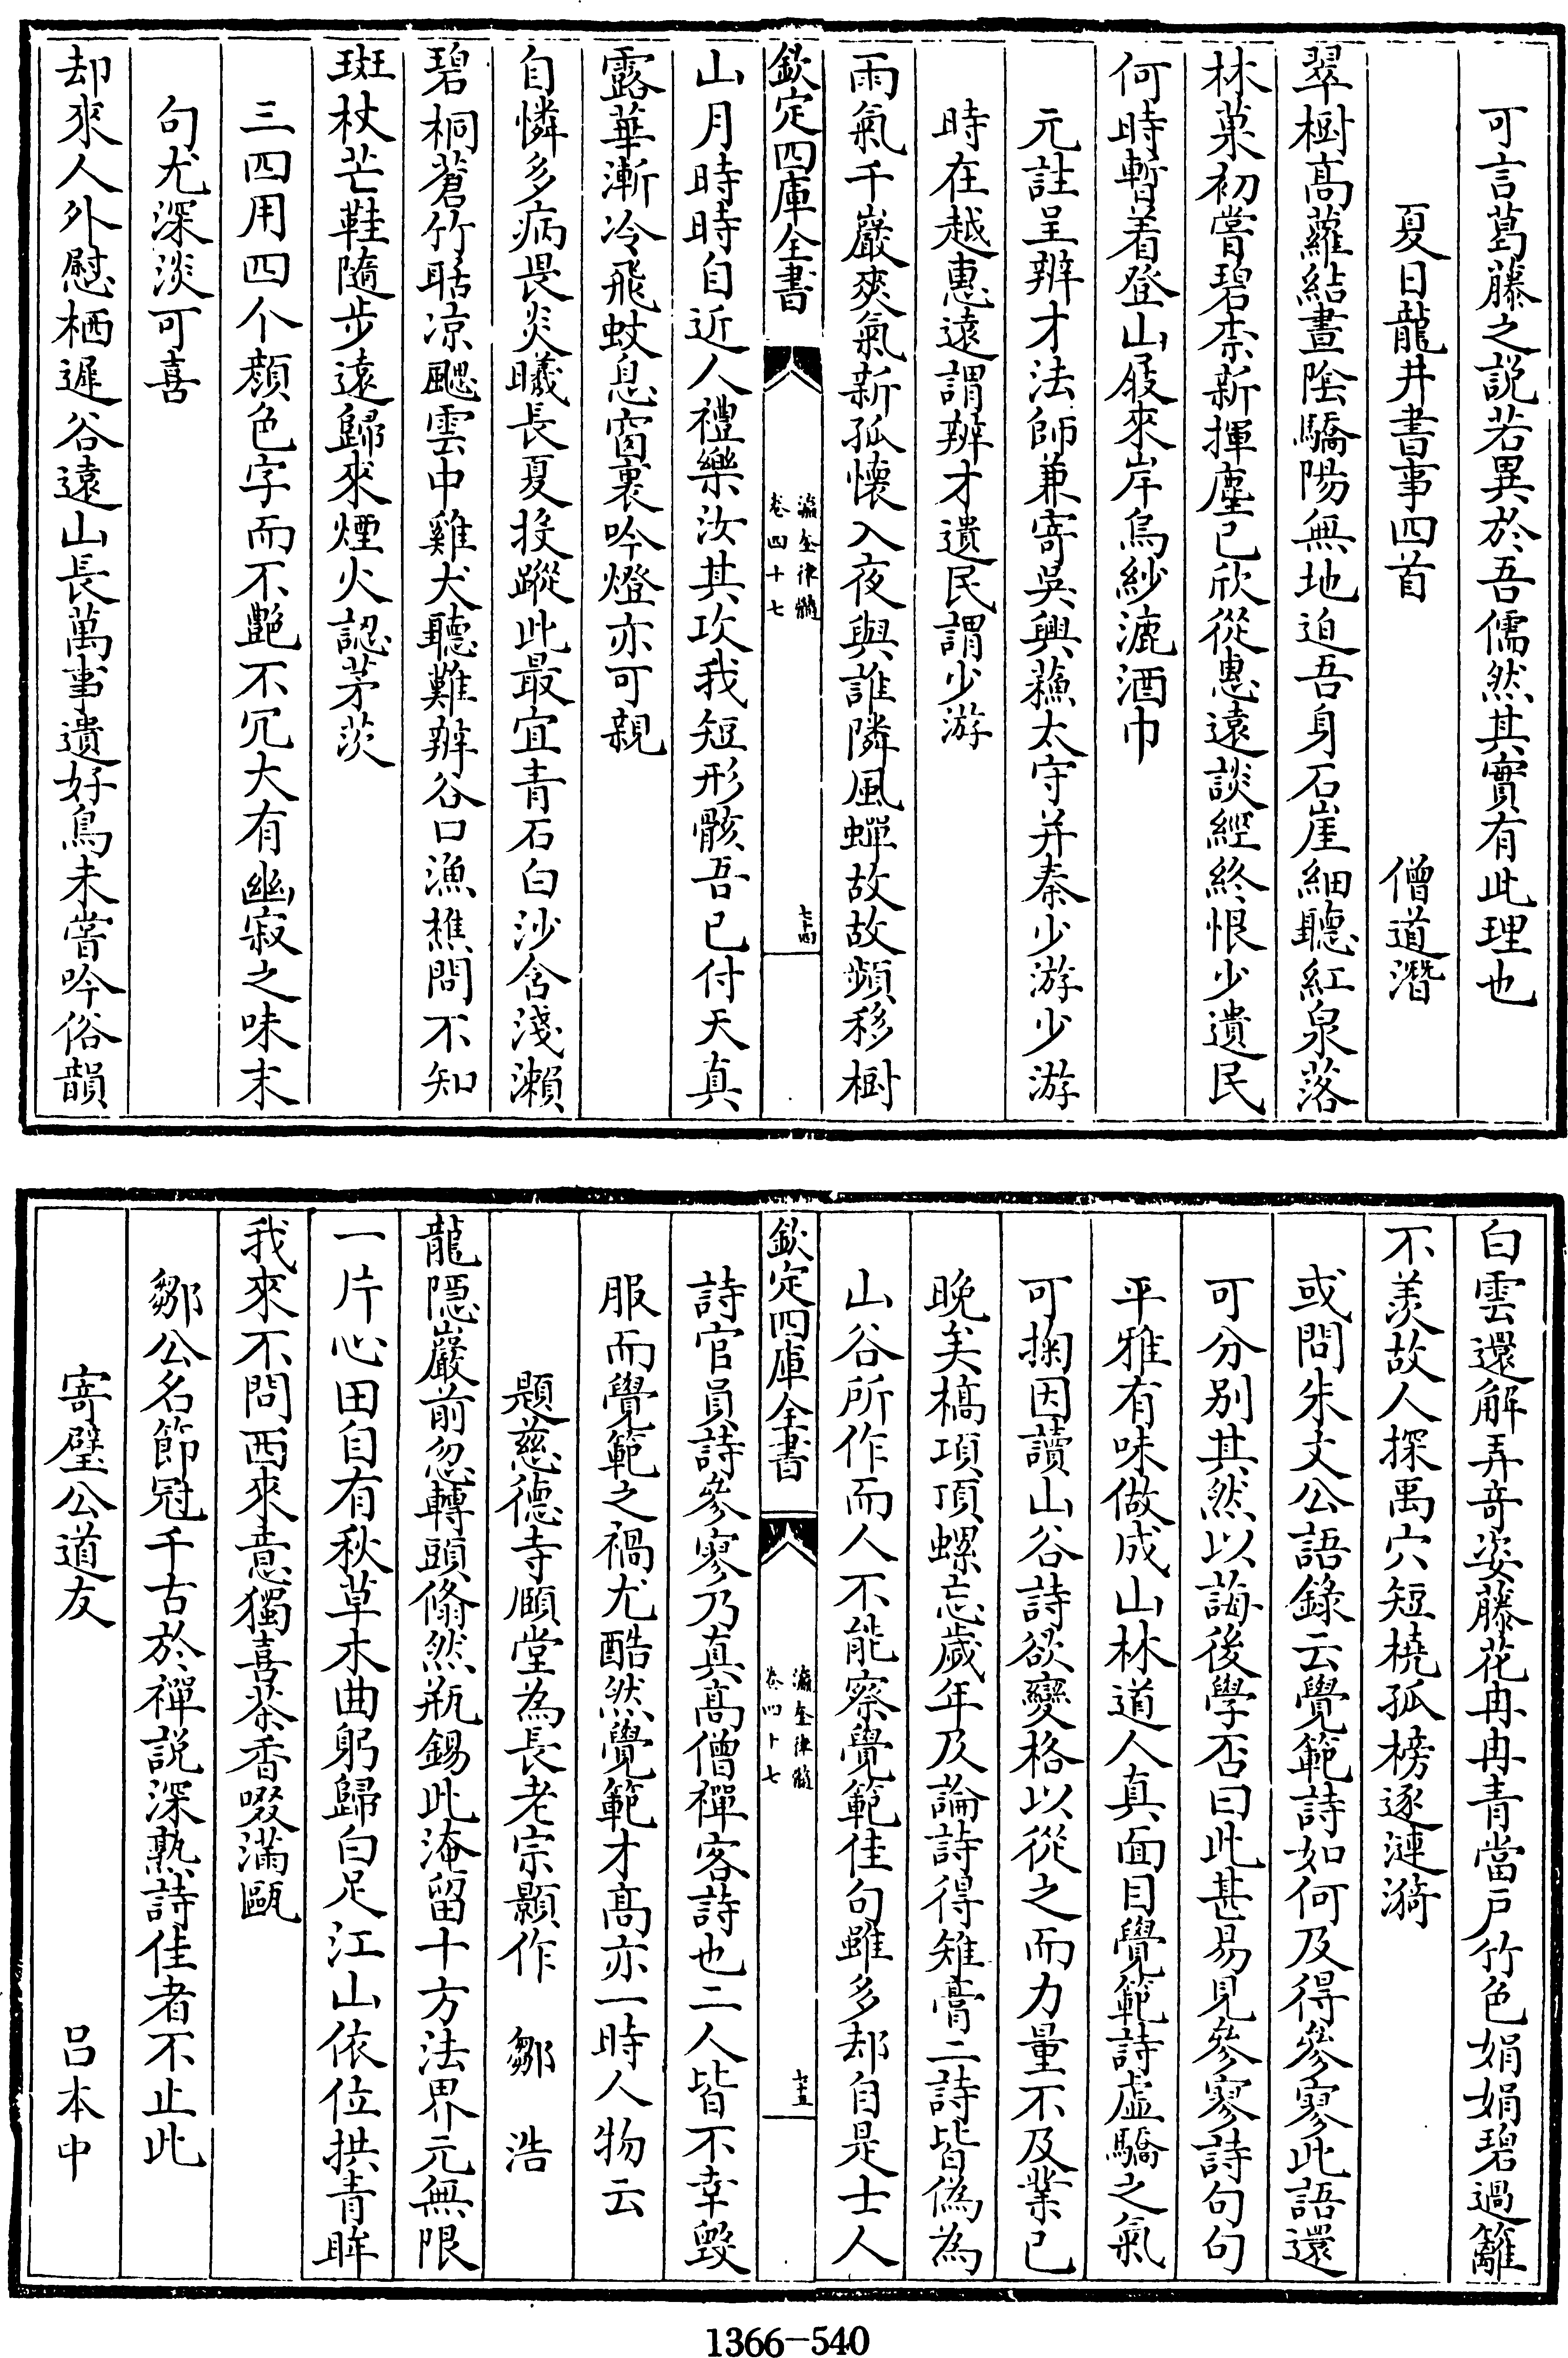 可言葛藤之説若異於吾儒然其實有此理也
夏日龍井書事四首 僧道潛
翠樹髙蘿結晝陰驕陽無地迫吾身石崖細聽紅泉落
林菓初嘗碧柰新揮麈已欣從惠遠談經終恨少遺民
何時暫着登山屐來岸烏紗漉酒巾
元註呈辨才法師兼寄吳興蘇太守并秦少游少游
時在越惠遠謂辨才遺民謂少游
雨氣千巖爽氣新孤懐入夜與誰隣風蟬故故頻移樹
欽定四庫全書
瀛奎律髓
卷四十七
七十四
山月時時自近人禮樂汝其攻我短形骸吾已付天真
露華漸冷飛蚊息窗裏吟燈亦可親
自憐多病畏炎曦長夏投蹤此最宜青石白沙含淺瀨
碧桐蒼竹聒凉颸雲中雞犬聽難辨谷口漁樵問不知
斑杖芒鞋隨步遠歸來煙火認茅茨
三四用四个顔色字而不艶不冗大有幽寂之味末
句尤深淡可喜
却來人外慰栖遲谷遠山長萬事遺好鳥未嘗吟俗韻
白雲還解弄竒姿藤花冉冉青當戸竹色娟娟碧過籬
不羨故人探禹穴短橈孤榜逐漣漪
或問朱文公語錄云覺範詩如何及得參寥此語還
可分别其然以誨後學否曰此甚易見參寥詩句句
平雅有味做成山林道人真面目覺範詩虚驕之氣
可掬因讀山谷詩欲變格以從之而力量不及業已
晚矣槁項頂螺忘歲年及論詩得雉膏二詩皆偽為
山谷所作而人不能察覺範佳句雖多却自是士人
欽定四庫全書
瀛奎律髓
卷四十七
七十五
詩官員詩參寥乃真髙僧禪客詩也二人皆不幸毀
服而覺範之禍尤酷然覺範才髙亦一時人物云
題慈德寺頤堂為長老宗顥作 鄒浩
龍隱巖前忽轉頭翛然瓶錫此淹留十方法界元無限
一片心田自有秋草木曲躬歸白足江山依位拱青眸
我來不問西來意獨喜茶香啜滿甌
鄒公名節冠千古於禪説深熟詩佳者不止此
寄璧公道友 吕本中
1366-540